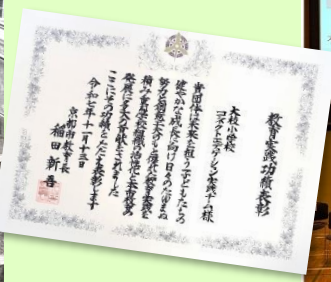 教育実践功績表彰
大枝小学校
コオーディネーション実践チーム様
貴団体は未来を担う子どもたちの
健やかな成長に向け日々のたゆまぬ
努力と創意工夫のもと優れた教育実践を
積み重ね学校組織の活性化と本市教育の
発展に多大な貢献をされました
ここにその功績をたたえ表彰します
令和七年十一月十三日
京都市教育長
稲田新吾